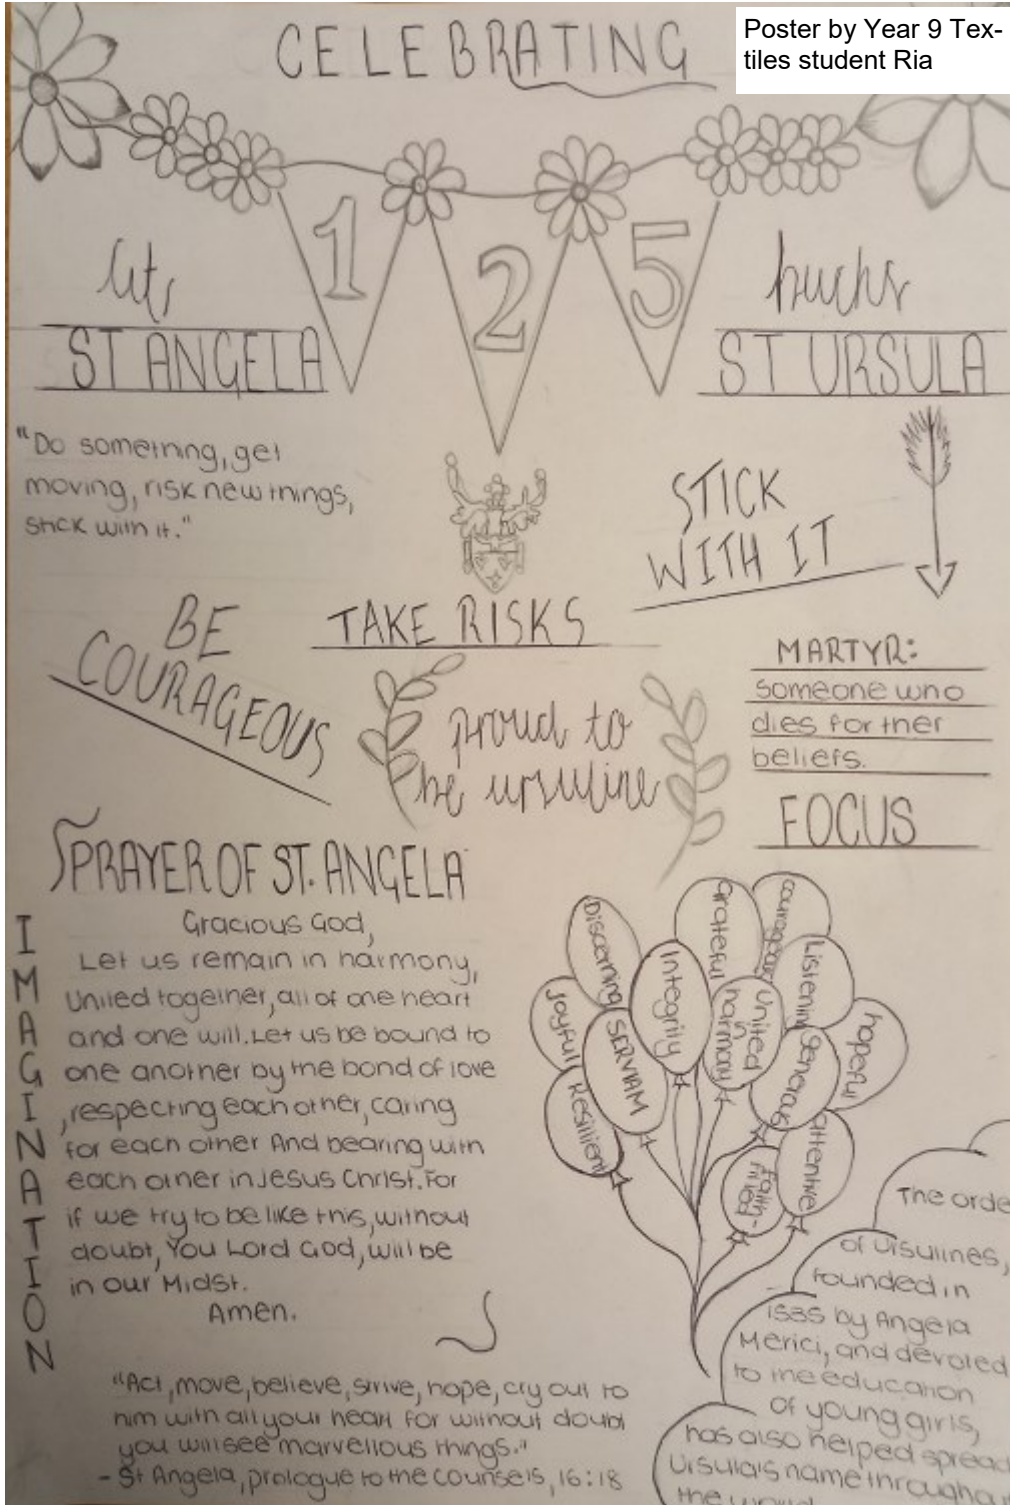 Poster by Year 9 Tex-
tiles student Ria
CELEBRATING
1 2 5
ST ANGELA
ST URSULA
"Do something, get
moving, risk new things,
stick with it."
STICK
WITH IT
BE
COURAGEOUS
TAKE RISKS
proud to
be ursuline
MARTYR:
someone who
dies for ther
beliefs.
FOCUS
PRAYER OF ST. ANGELA
IMAGINATION
Gracious God,
Let us remain in harmony,
United together, all of one heart
and one will. Let us be bound to
one another by the bond of love
, respecting each other, caring
for each other And bearing with
each other in Jesus Christ. For
if we try to be like this, without
doubt, You Lord God, will be
in our Midst.
Amen.
"Act, move, believe, strive, hope, cry out to
him with all your heart for without doubt
you will see marvellous things."
- St Angela, prologue to the counsels, 16:18
Discerning
Grateful
courageous
Integrity
Listening
United
in
harmony
hopeful
Joyful
SERVIAM
Generous
Resilient
attentive
Faith-
filled
The orde
of Ursulines,
founded in
1535 by Angela
Merici, and devoted
to the education
of young girls,
has also helped spread
Ursula's name througho
the world